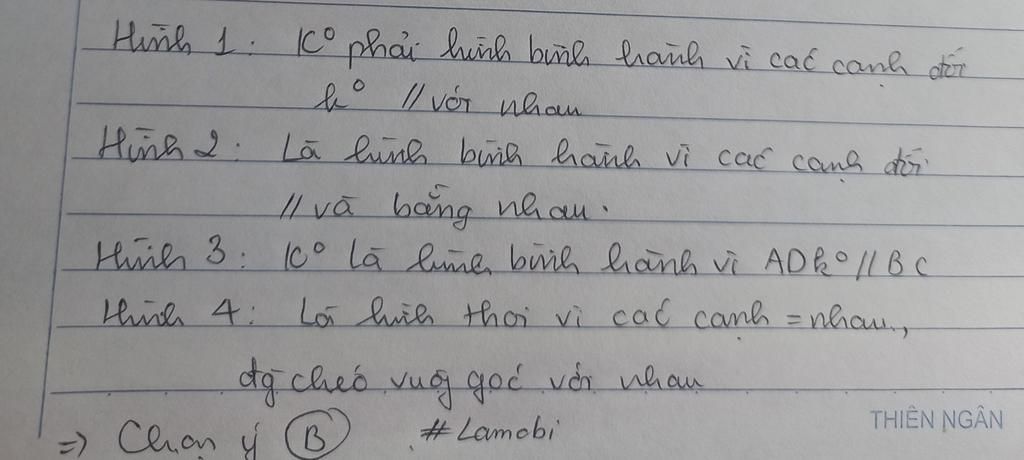 Hình 1: K° phải hình bình hành vì các cạnh đối
k° // với nhau
Hình 2: Là hình bình hành vì các cạnh đối
// và bằng nhau.
Hình 3: K° là hình bình hành vì AD k° // BC
Hình 4: Là hình thoi vì các cạnh = nhau,
đg chéo vuôg góc với nhau
=> Chọn ý B #Lamobi
THIÊN NGÂN